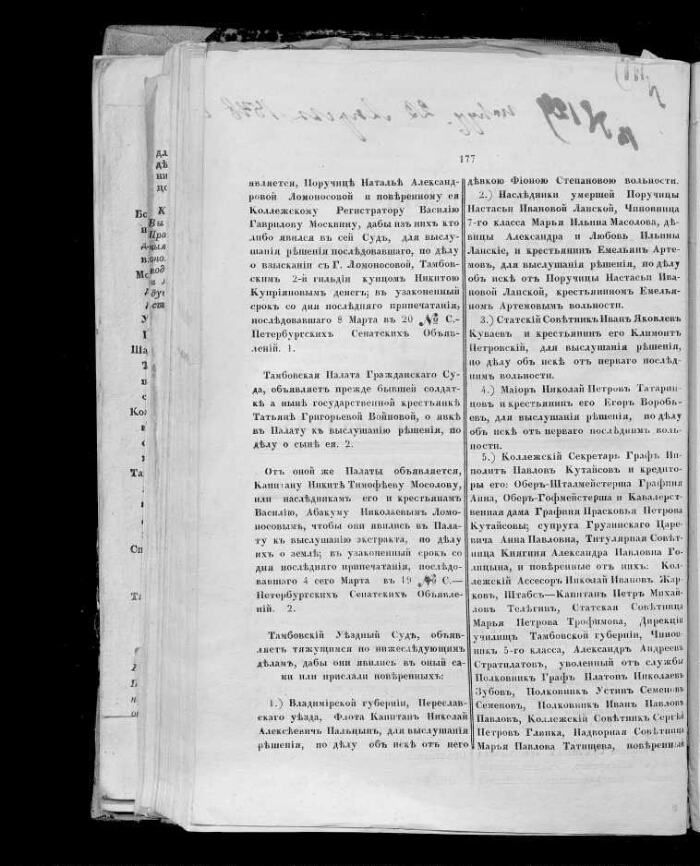 177
является, Поручицѣ Натальѣ Александ-
ровой Ломоносовой и повѣренному ея
Коллежскому Регистратору Василію
Гаврилову Москвину, дабы изъ нихъ кто
либо явился въ сей Судъ, для выслу-
шанія рѣшенія послѣдовавшаго, по дѣлу
о взысканіи съ Г. Ломоносовой, Тамбов-
скимъ 2-й гильдіи купцомъ Никитою
Купріяновымъ денегъ; въ узаконенный
срокъ со дня послѣдняго припечатанія,
послѣдовавшаго 8 Марта въ 20 № С.-
Петербургскихъ Сенатскихъ Объяв-
леній. 1.
Тамбовская Палата Гражданскаго Су-
да, объявляетъ прежде бывшей солдат-
кѣ а нынѣ государственной крестьянкѣ
Татьянѣ Григорьевой Войновой, о явкѣ
въ Палату къ выслушанію рѣшенія, по
дѣлу о сынѣ ея. 2.
Отъ оной же Палаты объявляется,
Капитану Никитѣ Тимофѣеву Мосолову,
или наслѣдникамъ его и крестьянамъ
Василію, Абакуму Николаевымъ Ломо-
носовымъ, чтобы они явились въ Пала-
ту къ выслушанію экстракта, по дѣлу
ихъ о землѣ; въ узаконенный срокъ со
дня послѣдняго припечатанія, послѣдо-
вавшаго 4 сего Марта въ 19 № С.—
Петербургскихъ Сенатскихъ Объявле-
ній. 2.
Тамбовскій Уѣздный Судъ, объяв-
ляетъ тяжущимся по нижеслѣдующимъ
дѣламъ, дабы они явились въ оный са-
ми или прислали повѣренныхъ:
1.) Владимірской губерніи, Переслав-
скаго уѣзда, Флота Капитанъ Николай
Алексѣевичь Пальцынъ, для выслушанія
рѣшенія, по дѣлу объ искѣ отъ него
дѣвкою Фіоною Степановою вольности.
2.) Наслѣдники умершей Поручицы
Настасьи Ивановой Ланской, Чиновница
7-го класса Марья Ильина Масолова, дѣ-
вицы Александра и Любовь Ильины
Ланскіе, и крестьянинъ Емельянъ Арте-
мовъ, для выслушанія рѣшенія, по дѣлу
объ искѣ отъ Поручицы Настасьи Ива-
новой Ланской, крестьяниномъ Емелья-
номъ Артемовымъ вольности.
3.) Статскій Совѣтникъ Иванъ Яковлевъ
Куваевъ и крестьянинъ его Климонтъ
Петровскій, для выслушанія рѣшенія,
по дѣлу объ искѣ отъ перваго послѣд-
нимъ вольности.
4.) Маіоръ Николай Петровъ Татарин-
цовъ и крестьянинъ его Егоръ Воробь-
евъ, для выслушанія рѣшенія, по дѣлу
объ искѣ отъ перваго послѣднимъ воль-
ности.
5.) Коллежскій Секретарь Графъ Ип-
политъ Павловъ Кутайсовъ и кредито-
ры его: Оберъ-Шталмейстерша Графиня
Анна, Оберъ-Гофмейстерша и Кавалерст-
венная дама Графиня Прасковья Петрова
Кутайсовы; супруга Грузинскаго Царе-
вича Анна Павловна, Титулярная Совѣт-
ница Княгиня Александра Павловна Го-
лицына, и повѣренные отъ нихъ: Кол-
лежскій Ассесоръ Николай Ивановъ Жар-
ковъ, Штабсъ—Капитанъ Петръ Михай-
ловъ Телѣгинъ, Статская Совѣтница
Марья Петрова Трофимова, Дирекція
училищъ Тамбовской губерніи, Чинов-
никъ 5-го класса, Александръ Андреевъ
Стратилатовъ, уволенный отъ службы
Полковникъ Графъ Платонъ Николаевъ
Зубовъ, Полковникъ Устинъ Семеновъ
Семеновъ, Полковникъ Иванъ Павловъ
Павловъ, Коллежскій Совѣтникъ Сергѣй
Петровъ Глинка, Надворная Совѣтница
Марья Павлова Татищева, повѣренныя